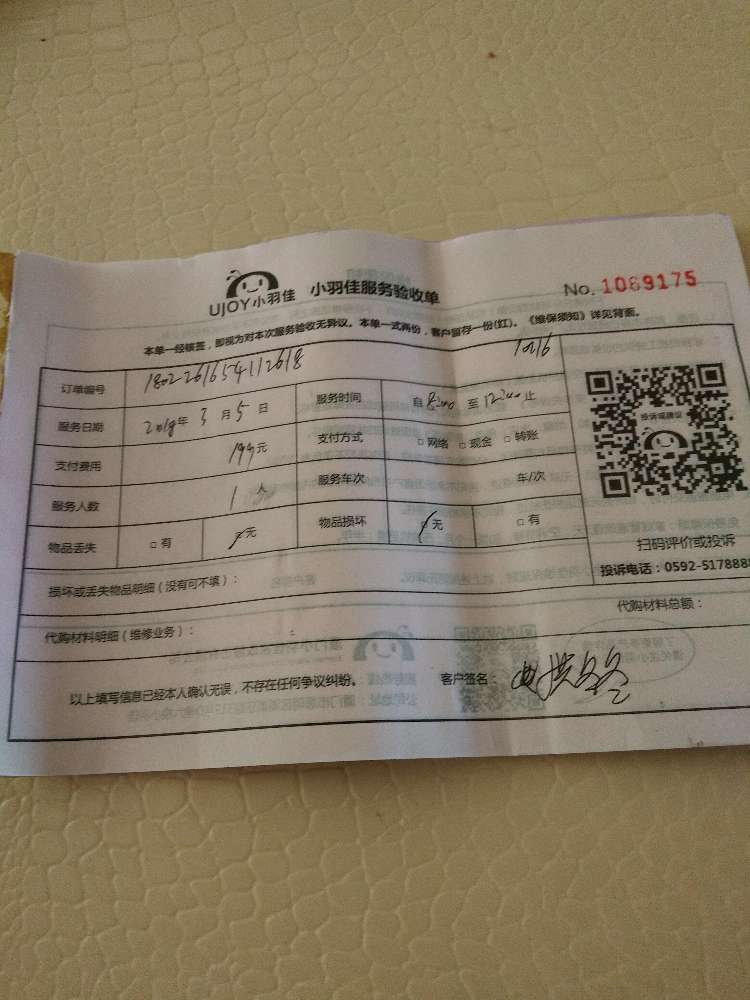 UJOY小羽佳 小羽佳服务验收单 No. 1069175
本单一经核签,即视为对本次服务验收无异议。本单一式两份,客户留存一份(红)。《维保须知》详见背面。
订单编号 1802261654112618 10216
服务日期 2018年 3月5日 服务时间 自8:00至12:00止
支付费用 199元 支付方式 □网络 □现金 □转账
服务人数 1人 服务车次 车/次
物品丢失 □有 □无 物品损坏 □无 □有
投诉或建议
扫码评价或投诉
投诉电话:0592-5178888
损坏或丢失物品明细(没有可不填):
代购材料明细(维修业务): 代购材料总额:
以上填写信息已经本人确认无误,不存在任何争议纠纷。 客户签名: